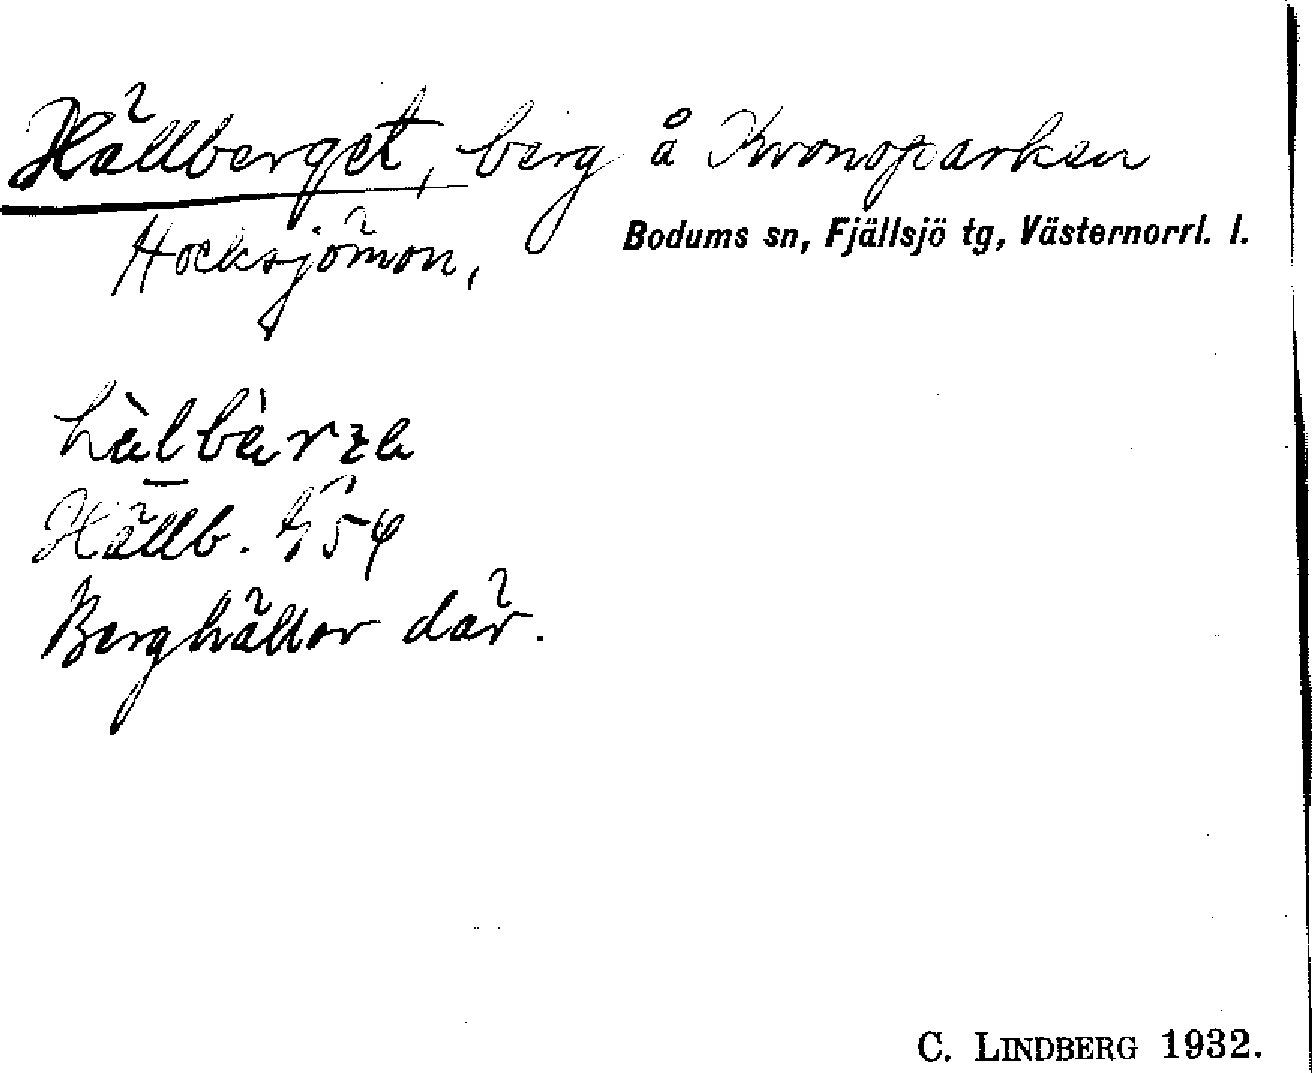 Hällberget, berg å Kronoparken
Hocksjömon, Bodums sn, Fjällsjö tg, Västernorrl. l.
hä̀lbä̀rʒa
Hällb. G 54
Berghällar där.
C. LINDBERG 1932.